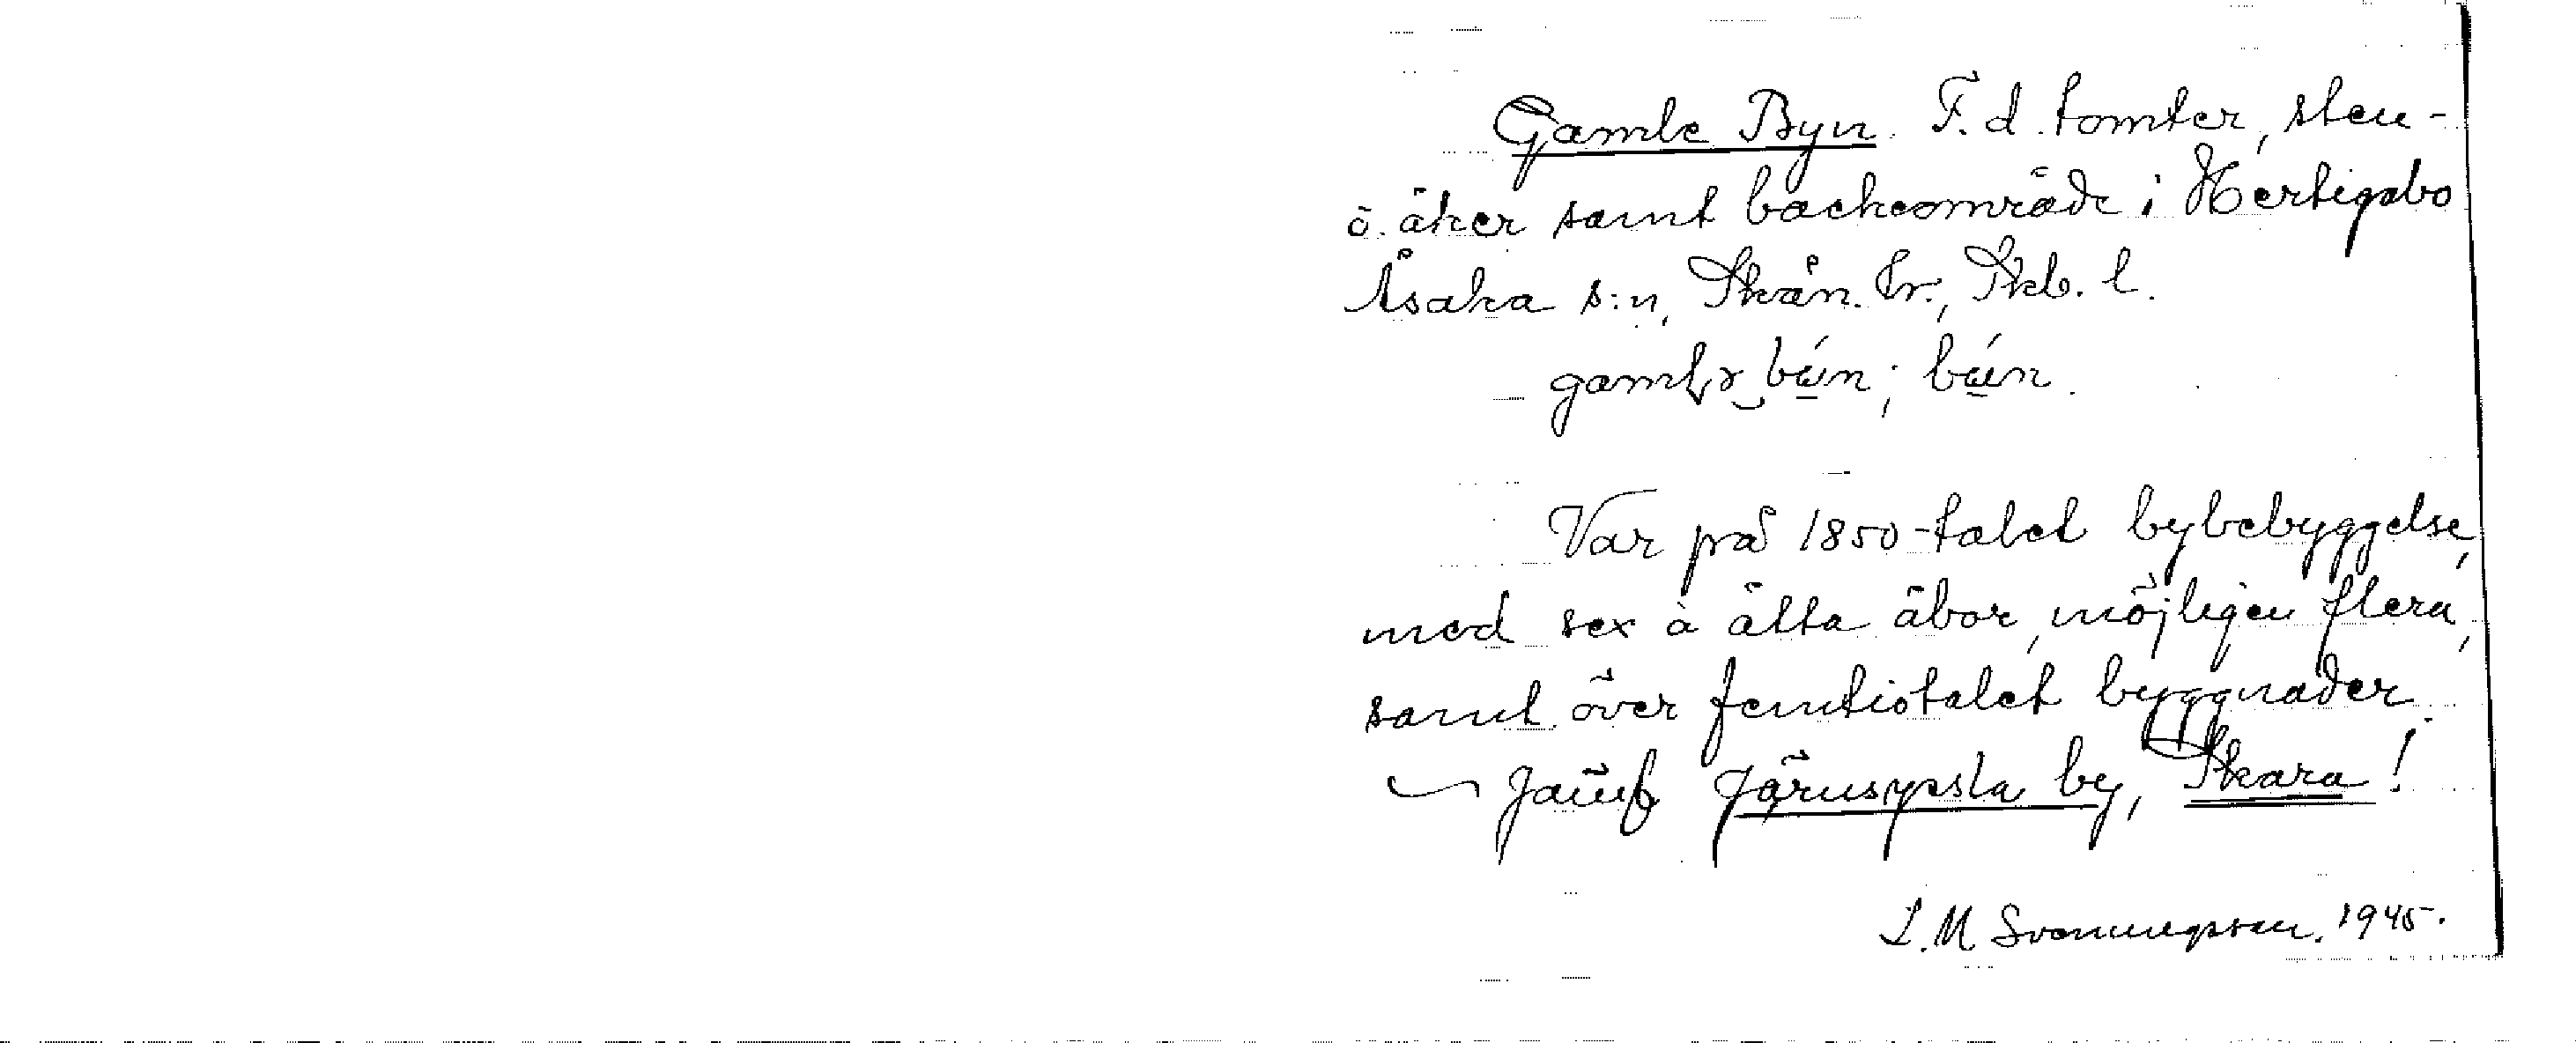 Gamle Byn. F. d. tomter, sten-
o. åker samt backeområde i Hertigsbo
Åsaka s:n, Skån. hr., Skb. l.
Var på 1850-talet bybebyggelse,
med sex à åtta åbor, möjligen flera,
samt över femtiotalet byggnader.
Jämf Järnsyssla by, Skara!
L. M. Svenungsson. 1945.